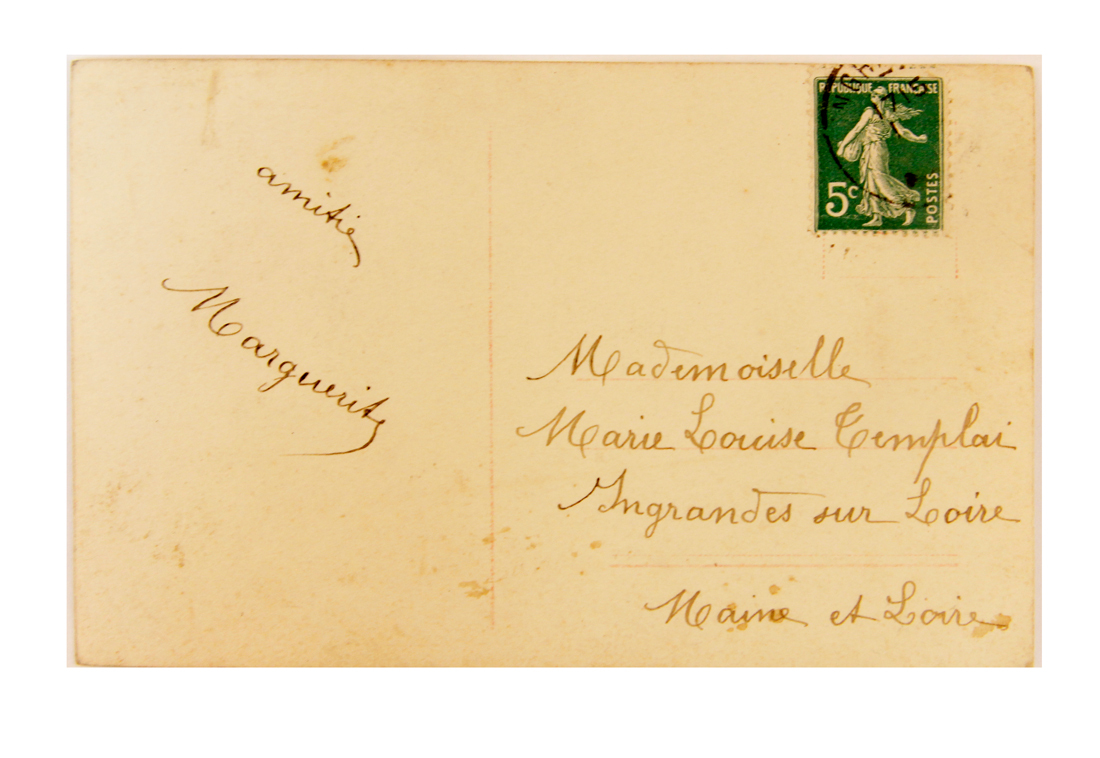 amitié
Marguerite
RÉPUBLIQUE FRANÇAISE
5c
POSTES
Mademoiselle
Marie Louise Templai
Ingrandes sur Loire
Maine et Loire